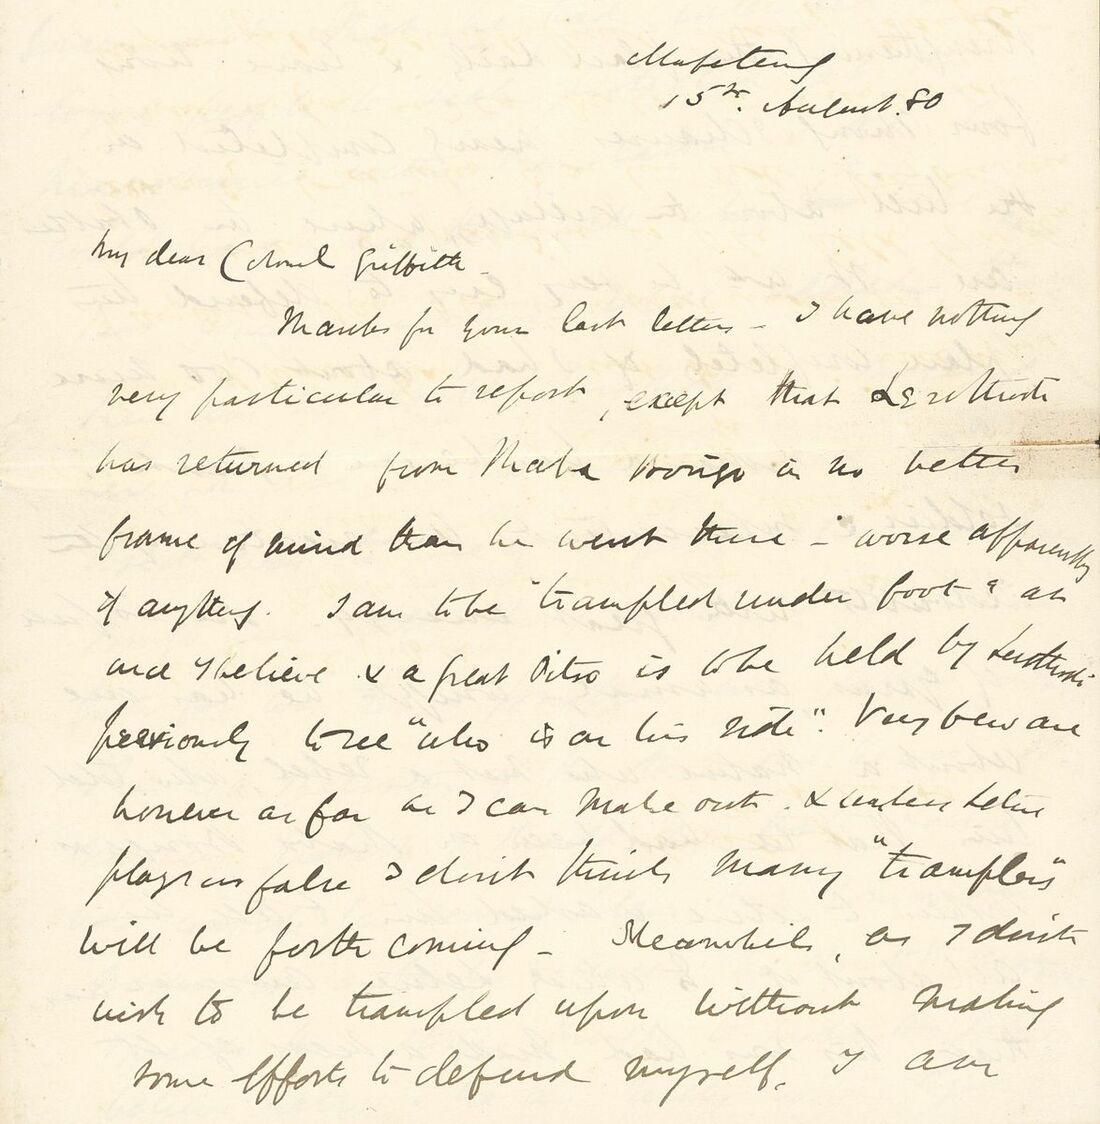 Mafeteng
15th. August. 80
My dear Colonel Griffith -
Thanks for your last letter - I have nothing
very particular to report, except that Lerothodi
has returned from Thaba Bosigo in no better
frame of mind than he went there - worse apparently
if anything. I am to be "trampled under foot" as
I believe & a great Pitso is to be held by Lerothodi
previously to see "who is on his side". Very few are
however as far as I can make out. & unless
plays us false I don't think many "tramplers"
will be forthcoming - Meanwhile, as I don't
wish to be trampled upon without making
some efforts to defend myself. I am